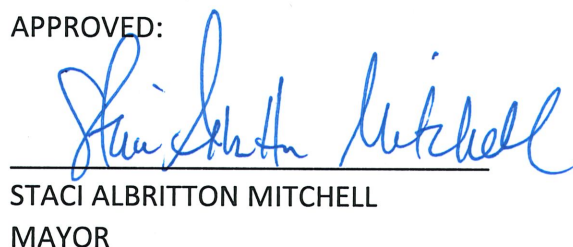 APPROVED:
Staci Albritton Mitchell
STACI ALBRITTON MITCHELL
MAYOR